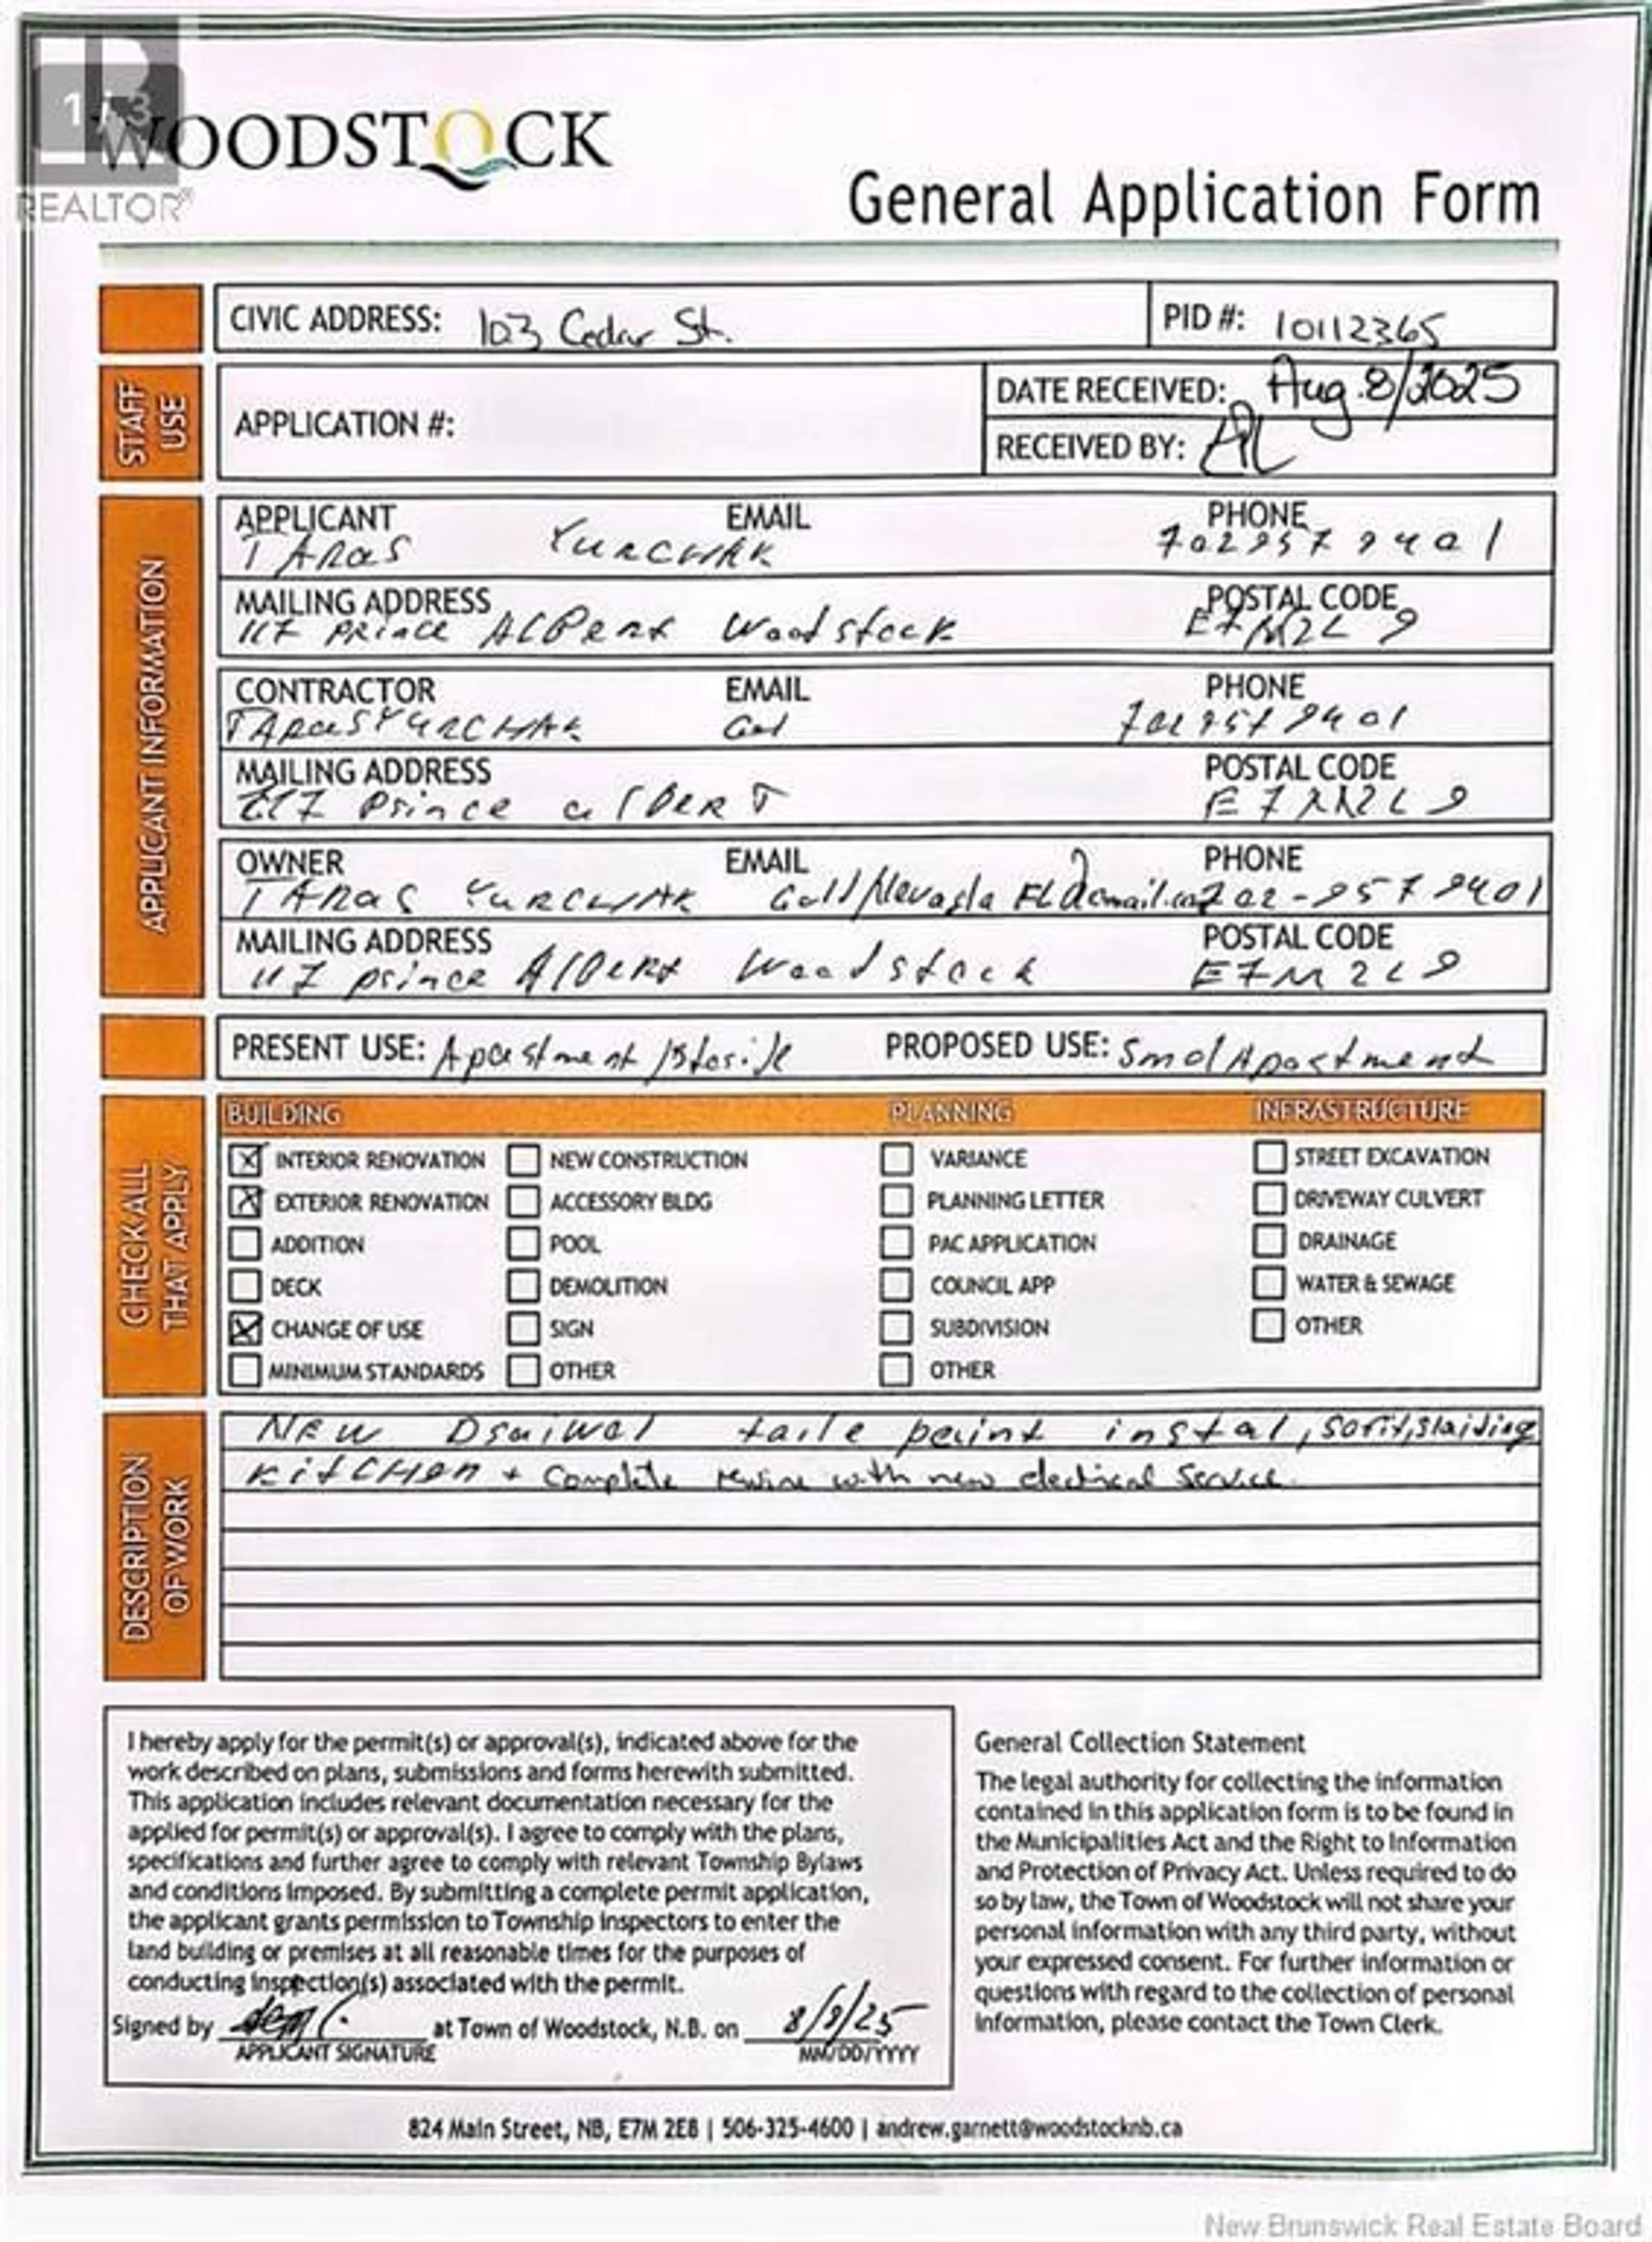 1 / 3
WOODSTOCK
REALTOR®
General Application Form
CIVIC ADDRESS: 103 Cedar St. PID #: 10112365
STAFF USE
APPLICATION #:
DATE RECEIVED: Aug. 8/2025
RECEIVED BY:
APPLICANT INFORMATION
APPLICANT EMAIL PHONE
TARas YURCHAK 702 957 9401
MAILING ADDRESS POSTAL CODE
117 PRince ALBert Woodstock E7M2L9
CONTRACTOR EMAIL PHONE
TARasYURCHAK 702 957 9401
MAILING ADDRESS POSTAL CODE
117 Prince alBERT E7M2L9
OWNER EMAIL PHONE
TARas YURCHAK 702-957 9401
MAILING ADDRESS POSTAL CODE
117 prince AlBert Woodstock E7M2L9
PRESENT USE: Apastment PROPOSED USE: Smol Apastment
CHECK ALL THAT APPLY
BUILDING PLANNING INFRASTRUCTURE
INTERIOR RENOVATION NEW CONSTRUCTION VARIANCE STREET EXCAVATION
EXTERIOR RENOVATION ACCESSORY BLDG PLANNING LETTER DRIVEWAY CULVERT
ADDITION POOL PAC APPLICATION DRAINAGE
DECK DEMOLITION COUNCIL APP WATER & SEWAGE
CHANGE OF USE SIGN SUBDIVISION OTHER
MINIMUM STANDARDS OTHER OTHER
DESCRIPTION OF WORK
NEW Draiwal taile paint instal, sofit, slaiding
KitCHen + Complete rewire with new electrical service.
I hereby apply for the permit(s) or approval(s), indicated above for the
work described on plans, submissions and forms herewith submitted.
This application includes relevant documentation necessary for the
applied for permit(s) or approval(s). I agree to comply with the plans,
specifications and further agree to comply with relevant Township Bylaws
and conditions imposed. By submitting a complete permit application,
the applicant grants permission to Township inspectors to enter the
land building or premises at all reasonable times for the purposes of
conducting inspection(s) associated with the permit.
Signed by at Town of Woodstock, N.B. on 8/8/25
APPLICANT SIGNATURE MM/DD/YYYY
General Collection Statement
The legal authority for collecting the information
contained in this application form is to be found in
the Municipalities Act and the Right to Information
and Protection of Privacy Act. Unless required to do
so by law, the Town of Woodstock will not share your
personal information with any third party, without
your expressed consent. For further information or
questions with regard to the collection of personal
information, please contact the Town Clerk.
824 Main Street, NB, E7M 2E8 | 506-325-4600 | andrew.garnett@woodstocknb.ca
New Brunswick Real Estate Board